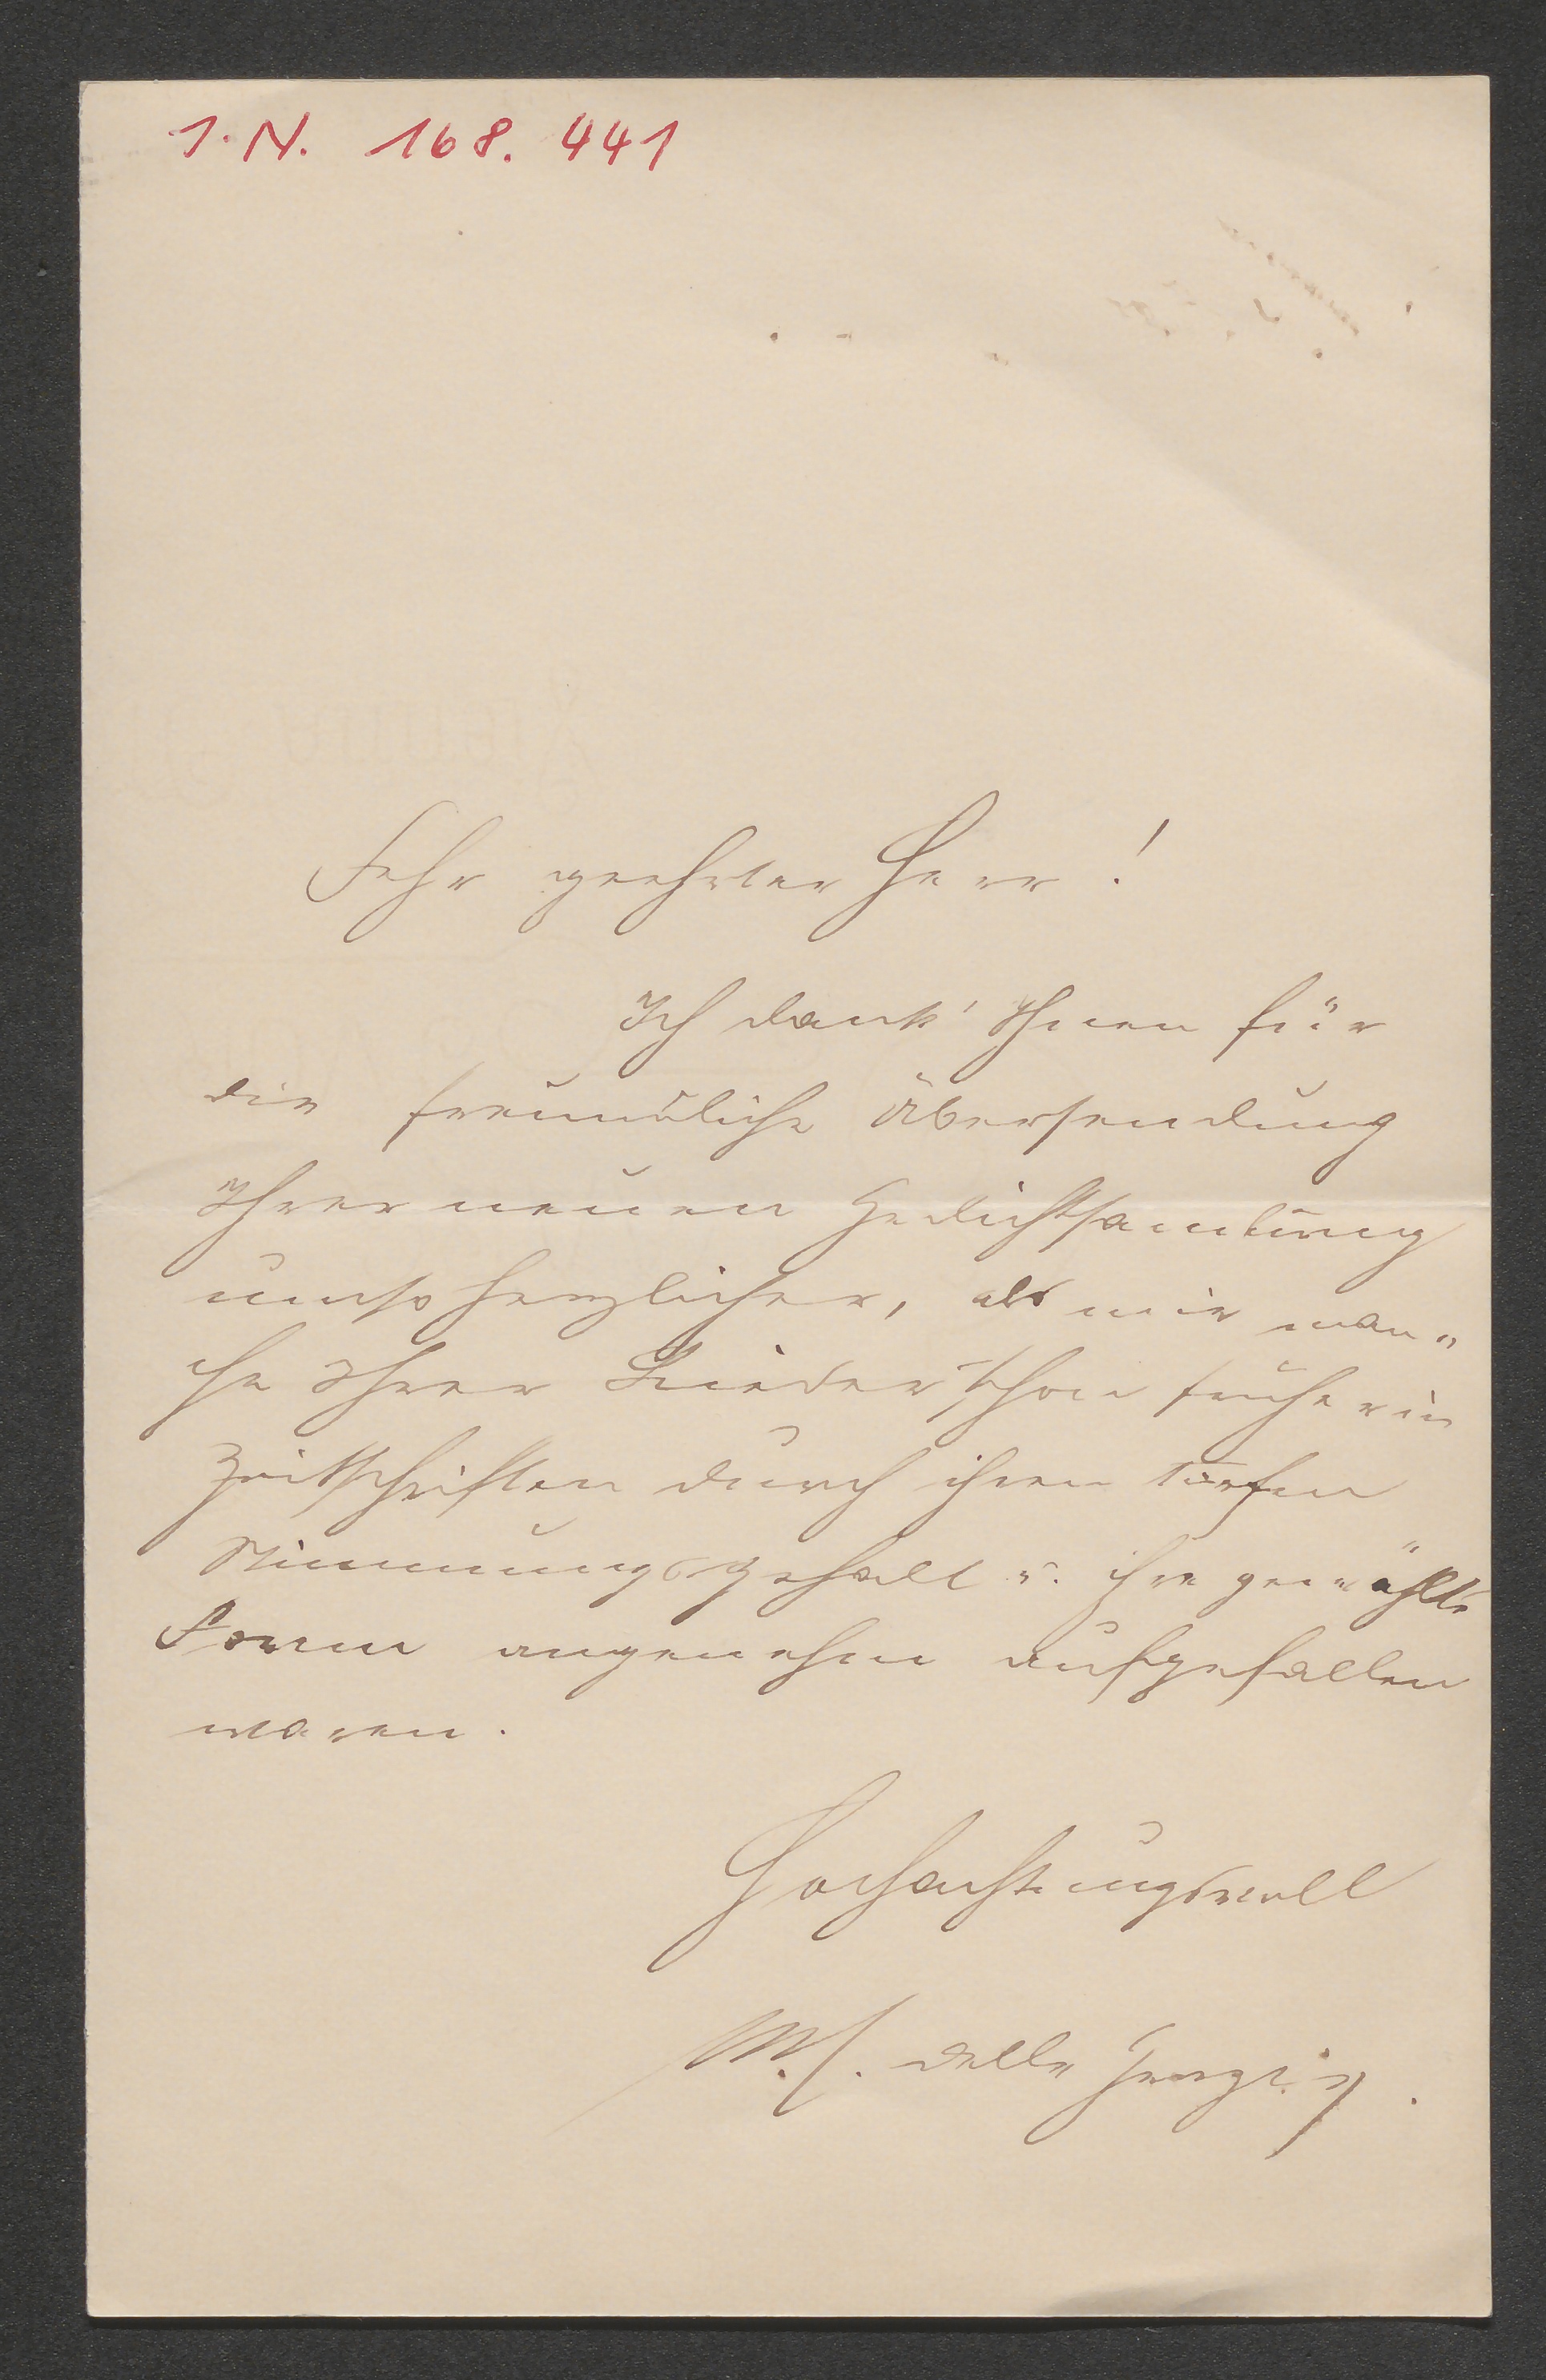 I. N. 168. 441
Sehr geehrter Herr!
Ich dank' Ihnen für
die freundliche Übersendung
Ihrer neuen Gedichtsamlung
umso herzlicher, als mir man-
che Ihrer Lieder schon früher in
Zeitschriften durch ihren tiefen
Stimmungsgehalt u. ihre gewählte
Form angenehm aufgefallen
waren.
Hochachtungsvoll
M. E. delle Grazie.